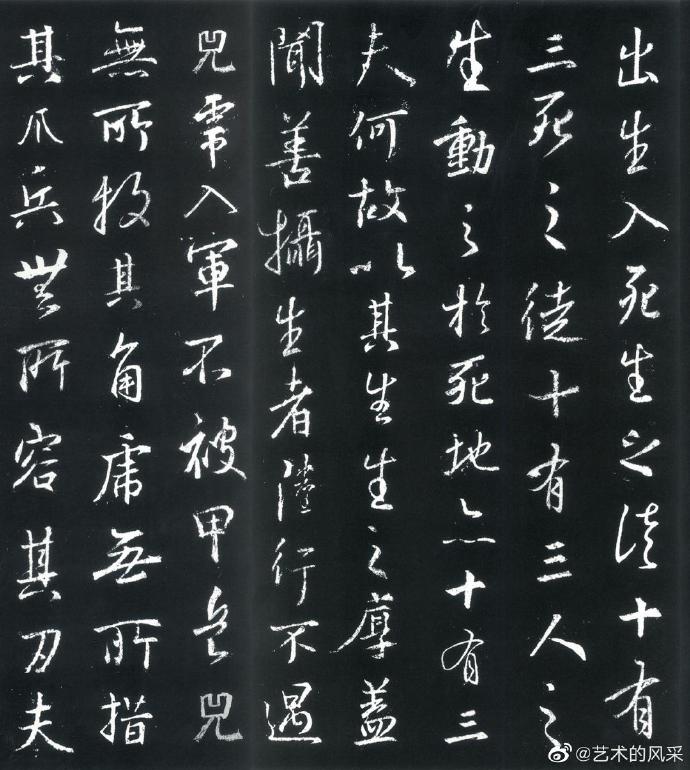 出生入死生之徒十有
三死之徒十有三人之
生動之於死地亦十有三
夫何故以其生生之厚蓋
聞善攝生者陸行不遇
兕虎入軍不被甲兵兕
無所投其角虎無所措
其爪兵無所容其刃夫
@艺术的风采